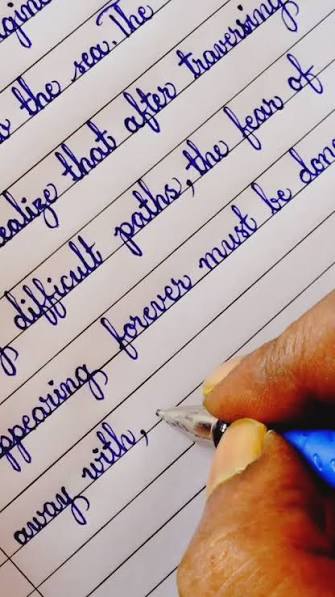 the sea. The
ealize that after traversing
difficult paths, the fear of
ppearing forever must be done
away with,